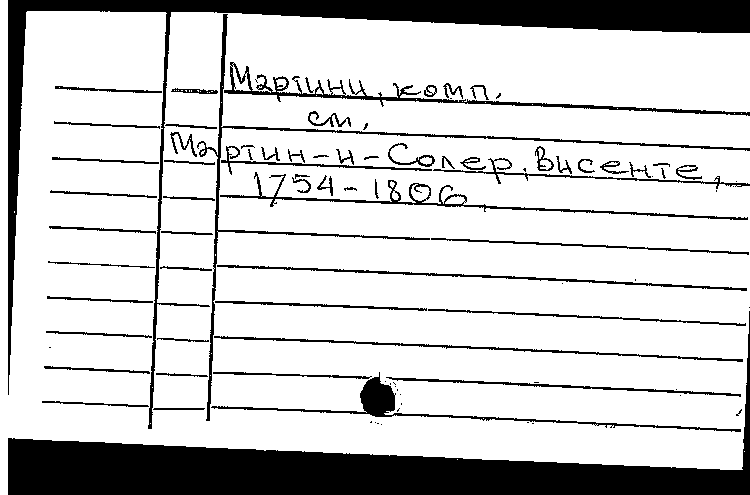 Мартини, комп.
см.
Мартин-и-Солер, Висенте,
1754-1806.